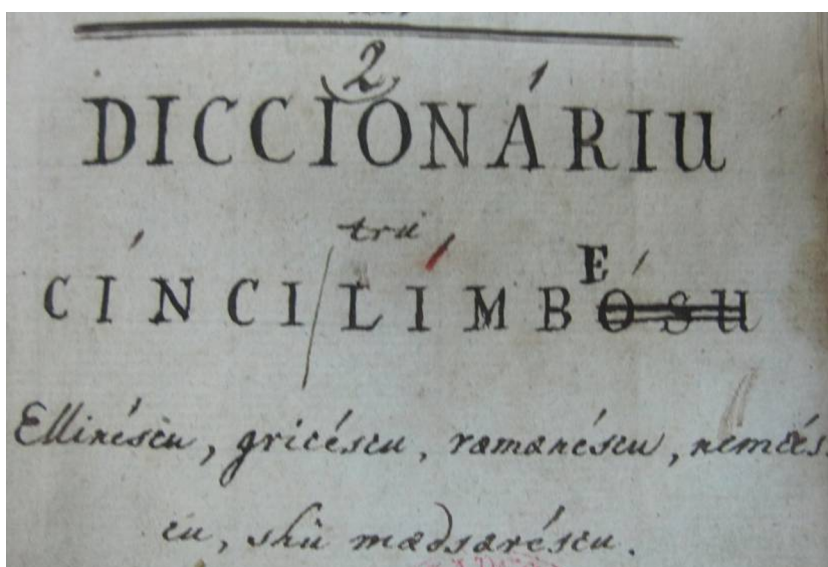 2
DICCIONÁRIU
tru
CÍNCI/LÍMBÓSU E
Ellinéscu, gricéscu, ramanéscu, nemccés
cu, shi mædsæréscu.